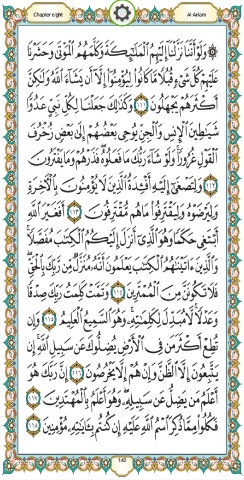 Chapter eight
Al-An'am
۞ وَلَوْ أَنَّنَا نَزَّلْنَا إِلَيْهِمُ الْمَلَٰٓئِكَةَ وَكَلَّمَهُمُ الْمَوْتَىٰ وَحَشَرْنَا
عَلَيْهِمْ كُلَّ شَيْءٍ قُبُلًا مَّا كَانُوا لِيُؤْمِنُوٓا إِلَّآ أَن يَشَآءَ اللَّهُ وَلَٰكِنَّ
أَكْثَرَهُمْ يَجْهَلُونَ ١١١ وَكَذَٰلِكَ جَعَلْنَا لِكُلِّ نَبِيٍّ عَدُوًّا
شَيَٰطِينَ الْإِنسِ وَالْجِنِّ يُوحِي بَعْضُهُمْ إِلَىٰ بَعْضٍ زُخْرُفَ
الْقَوْلِ غُرُورًا وَلَوْ شَآءَ رَبُّكَ مَا فَعَلُوهُ فَذَرْهُمْ وَمَا يَفْتَرُونَ
١١٢ وَلِتَصْغَىٰٓ إِلَيْهِ أَفْـِٔدَةُ الَّذِينَ لَا يُؤْمِنُونَ بِالْءَاخِرَةِ
وَلِيَرْضَوْهُ وَلِيَقْتَرِفُوا مَا هُم مُّقْتَرِفُونَ ١١٣ أَفَغَيْرَ اللَّهِ
أَبْتَغِي حَكَمًا وَهُوَ الَّذِيٓ أَنزَلَ إِلَيْكُمُ الْكِتَٰبَ مُفَصَّلًا
وَالَّذِينَ ءَاتَيْنَٰهُمُ الْكِتَٰبَ يَعْلَمُونَ أَنَّهُ مُنَزَّلٌ مِّن رَّبِّكَ بِالْحَقِّ
فَلَا تَكُونَنَّ مِنَ الْمُمْتَرِينَ ١١٤ وَتَمَّتْ كَلِمَتُ رَبِّكَ صِدْقًا
وَعَدْلًا لَّا مُبَدِّلَ لِكَلِمَٰتِهِ وَهُوَ السَّمِيعُ الْعَلِيمُ ١١٥ وَإِن
تُطِعْ أَكْثَرَ مَن فِي الْأَرْضِ يُضِلُّوكَ عَن سَبِيلِ اللَّهِ إِن
يَتَّبِعُونَ إِلَّا الظَّنَّ وَإِنْ هُمْ إِلَّا يَخْرُصُونَ ١١٦ إِنَّ رَبَّكَ هُوَ
أَعْلَمُ مَن يَضِلُّ عَن سَبِيلِهِ وَهُوَ أَعْلَمُ بِالْمُهْتَدِينَ ١١٧
فَكُلُوا مِمَّا ذُكِرَ اسْمُ اللَّهِ عَلَيْهِ إِن كُنتُم بِـَٔايَٰتِهِ مُؤْمِنِينَ ١١٨
142